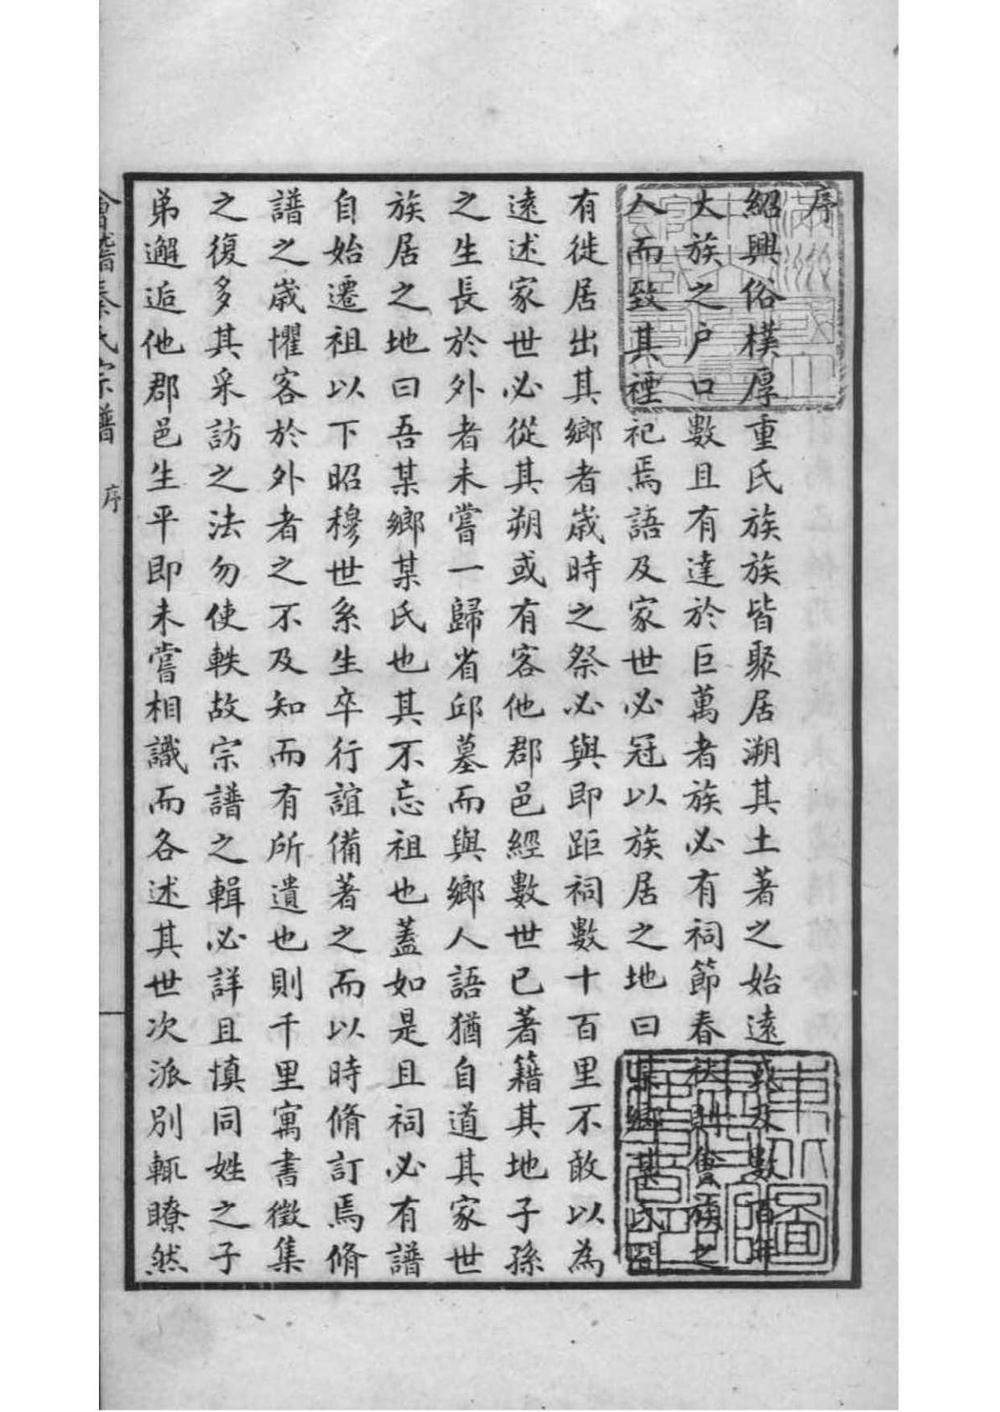 序
紹興俗樸厚重氏族族皆聚居溯其土著之始遠或及數百年
大族之户口數且有達於巨萬者族必有祠節春秋則會族之
人而致其禋祀焉語及家世必冠以族居之地曰某鄉某氏間
有徙居出其鄉者歲時之祭必與即距祠數十百里不敢以為
遠述家世必從其朔或有客他郡邑經數世已著籍其地子孫
之生長於外者未嘗一歸省邱墓而與鄉人語猶自道其家世
族居之地曰吾某鄉某氏也其不忘祖也蓋如是且祠必有譜
自始遷祖以下昭穆世系生卒行誼備著之而以時脩訂焉脩
譜之歲懼客於外者之不及知而有所遺也則千里寓書徵集
之復多其采訪之法勿使軼故宗譜之輯必詳且慎同姓之子
弟邂逅他郡邑生平即未嘗相識而各述其世次派別輒瞭然
會稽秦氏宗譜 序